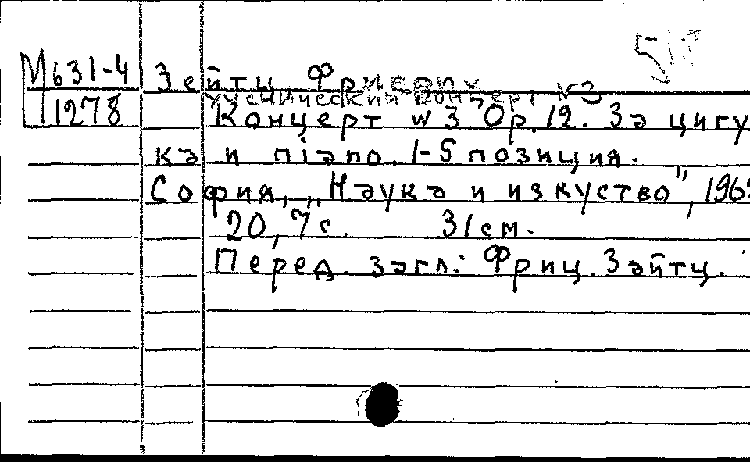 М631-4 Зейтц Фридрих
Ученический концерт №3
1278 Концерт №3 Op. 12. За цигу
ка и піапо. 1-5 позиция.
София, „Наука и изкуство”, 196
20, 7с. 31см.
Перед загл: Фриц. Зайтц.